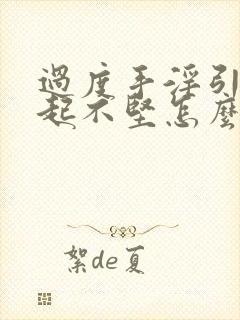 過度手淫引
起不堅怎麼
絮de夏